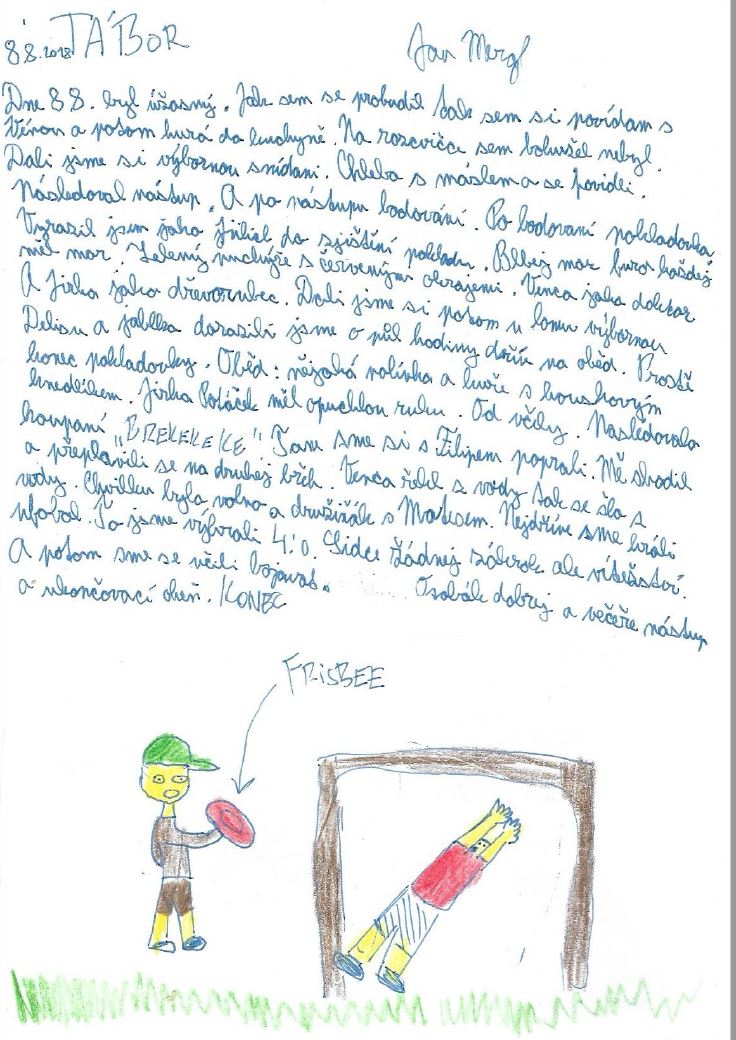 8.8.2018 TÁBOR
Jan Mergl
Dne 8 8. byl úžasný. Jak sem se probudil tak sem si povídam s
Vénou a potom hurá do kuchyně. Na rozcvičce sem bohužel nebyl.
Dali jsme si výbornou snídani. Chleba s máslem a se povidli.
Následoval nástup. A po nástupu bodování. Po bodovaní pokladovka,
Vyrazil jsem jako Filiel do zjištění pokladu. Blbej mor huro každej
měl mor. Zelený puchýře s červenými okrajemi. Venca jako doktor
A Jirka jako dřevorubec. Dali jsme si potom u lomu výbornou
Delisu a jablka dorasili jsme o půl hodiny dřív na oběd. Prostě
konec pokladovky. Oběd: nějaká polívka a kuře s houskovým
knedlíkem. Jirka Poláček měl opuchlou ruku. Od včely. Nasledovala
koupaní „BREKEKEKE“ Tam sme si s Filipem poprali. Mě shodil
a přeplavili se na druhej břeh. Venca řekl z vody tak se šlo z
vody. Chvilku bylo volno a družiňák s Maksem. Nejdříve sme hráli
ufobal. To jsme výhrali 4:0. Sidce žádnej zákrok ale vítěžství.
A potom sme se učili bojovat. Osobák dobrej a večeře nástup
a ukončovací oheň. KONEC
FRISBEE